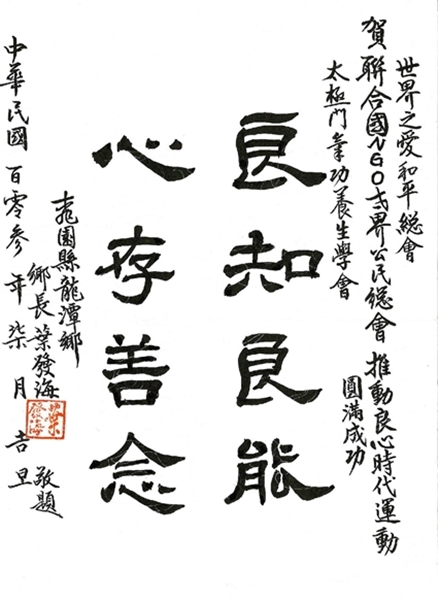 世界之愛和平總會
賀 聯合國NGO世界公民總會 推動良心時代運動
太極門氣功養生學會 圓滿成功
良知良能
心存善念
桃園縣龍潭鄉
鄉長 葉發海 敬題
中華民國百零參年柒月吉旦